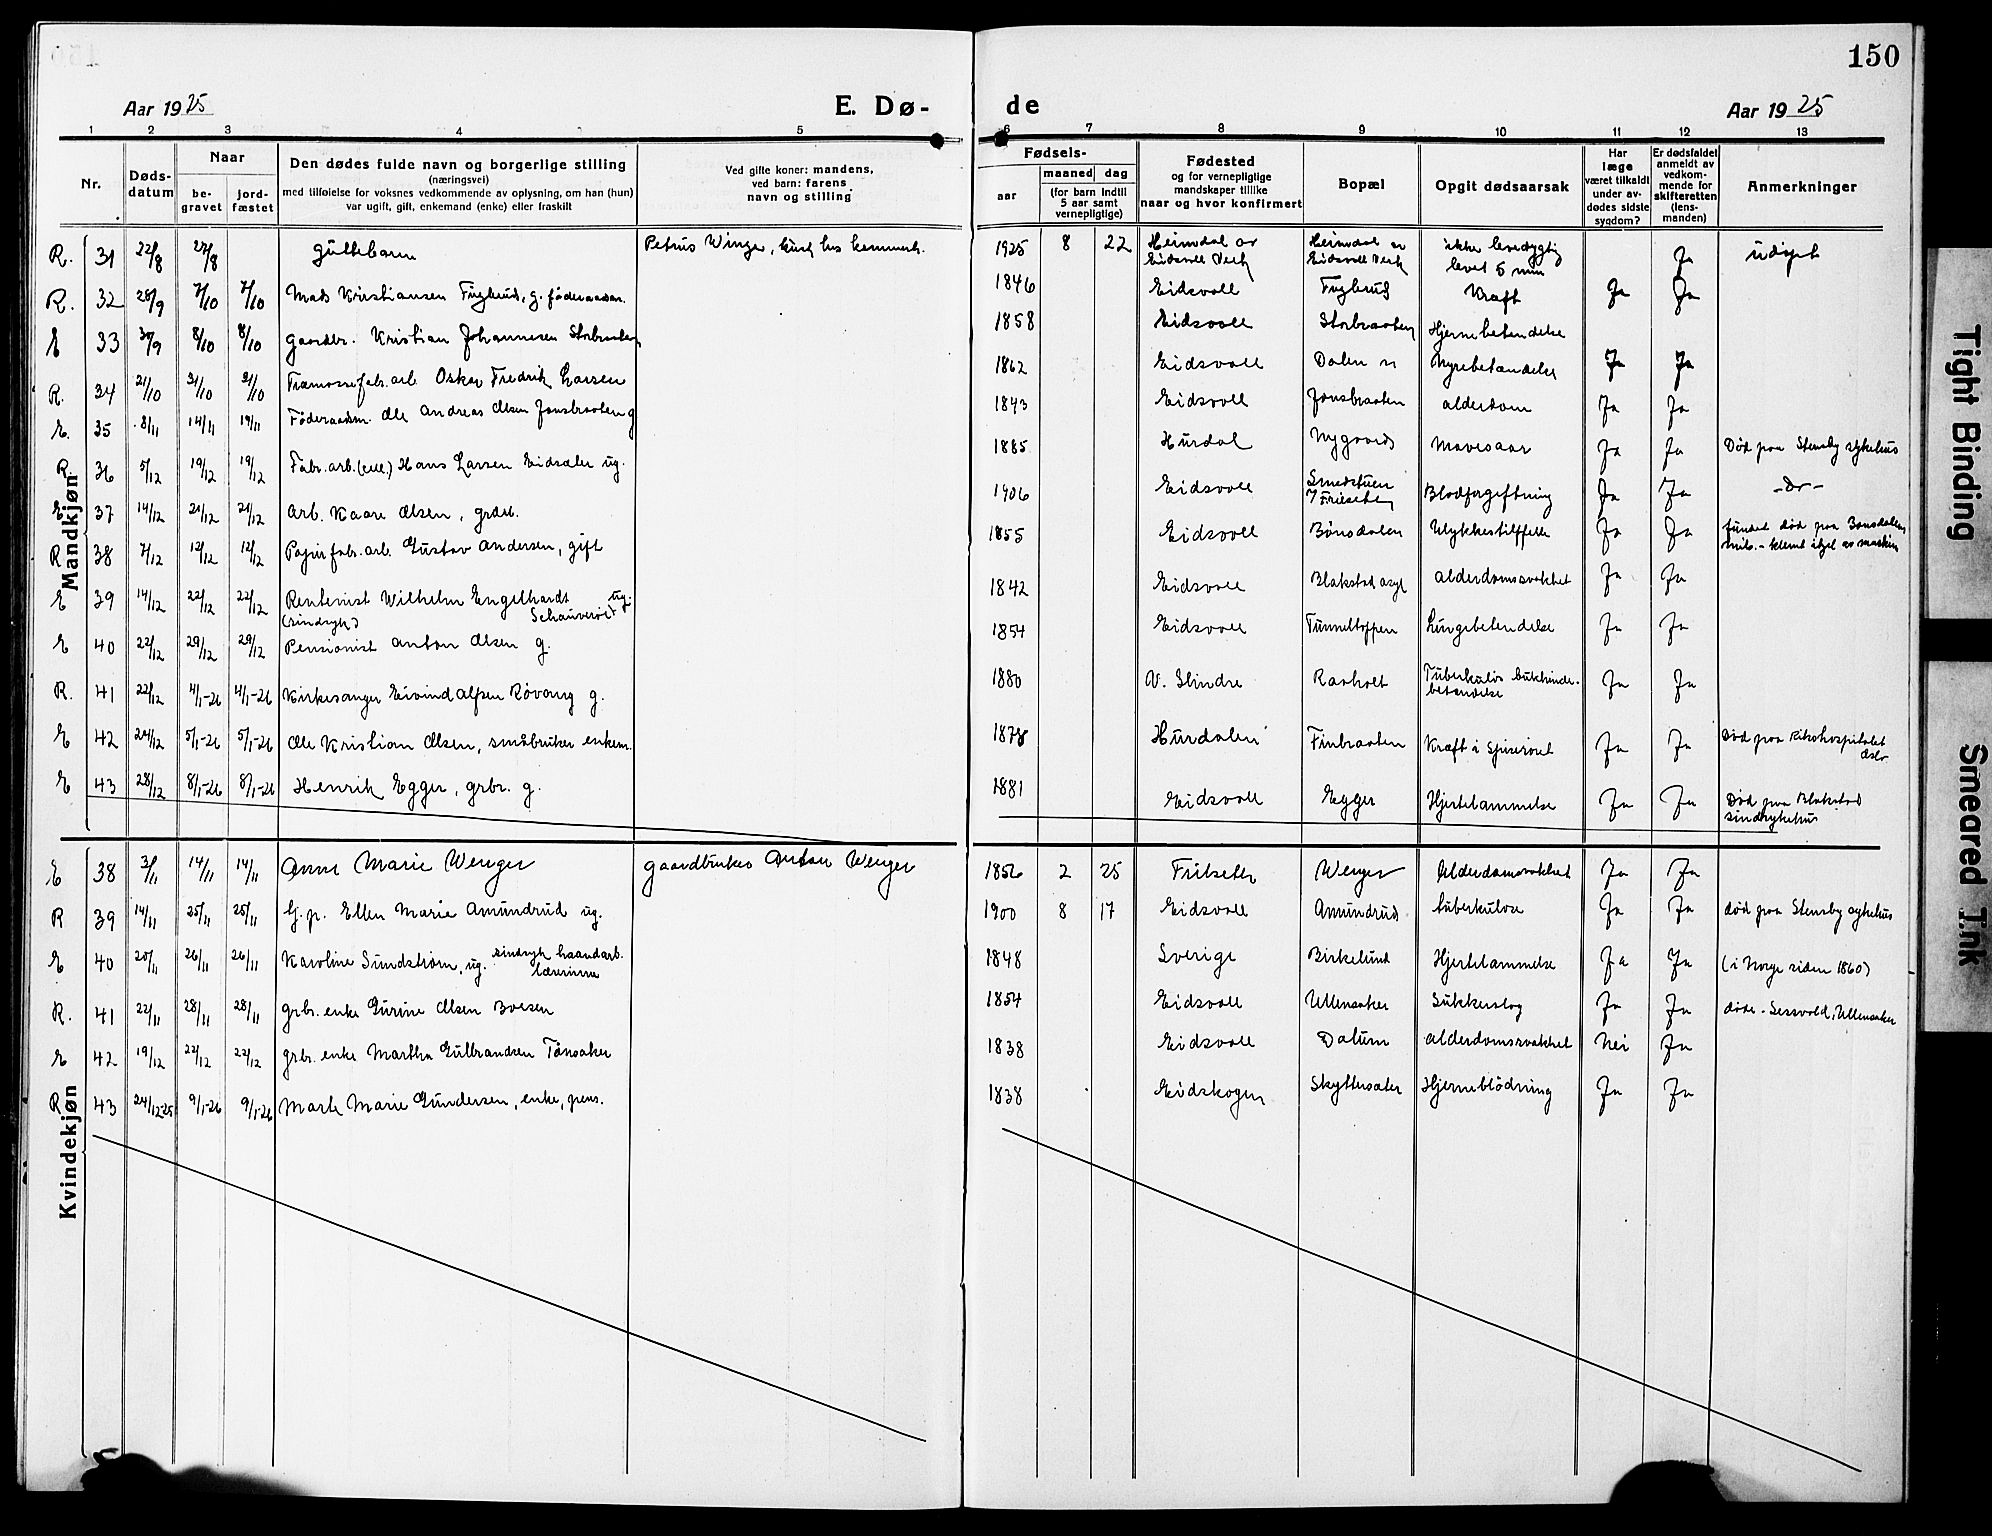 150
Aar 1925
E. Dø-
de
Aar 1925
1 2 3 4 5 6 7 8 9 10 11 12 13
Nr.
Døds-
datum
Naar
be-
gravet
jord-
fæstet
Den dødes fulde navn og borgerlige stilling
(næringsvei)
med tilføielse for voksnes vedkommende av oplysning, om han (hun)
var ugift, gift, enkemand (enke) eller fraskilt
Ved gifte koner: mandens,
ved barn: farens
navn og stilling
Fødsels-
aar
maaned dag
(for barn indtil
5 aar samt
vernepligtige)
Fødested
og for vernepligtige
mandskaper tillike
naar og hvor konfirmert
Bopæl
Opgit dødsaarsak
Har
læge
været tilkaldt
under av-
dødes sidste
sygdom?
Er dødsfaldet
anmeldt av
vedkom-
mende for
skifteretten
(lens-
manden)
Anmerkninger
Mandkjøn
R. 31 22/8 27/8 Guttebarn Petrus Winger, 1925 8 22 Heimdal av Eidsvoll Verk Heimdal Eidsvoll Verk ikke levedygtig levet 5 min Ja udöpt
R. 32 28/9 7/10 7/10 Mads Kristiansen Fuglerud, g. föderaadsm. 1846 Eidsvoll Fuglerud Kræft Ja Ja
E 33 30/9 8/10 8/10 Gaardbr. Kristian Johannesen Storbraaten 1858 Eidsvoll Storbraaten Hjernebetendelse
R. 34 21/10 31/10 31/10 Tramassefabr.arb Oskar Fredrik Larsen 1862 Eidsvoll Dalen Nyrebetændelse Ja Ja
E. 35 8/11 14/11 14/11 Föderaadsm. Ole Andreas Olsen Jonsbraaten g 1843 Eidsvoll Jonsbraaten alderdom Ja Ja
R. 36 5/12 19/12 19/12 Fabr.arb. Hans Larsen ug. 1885 Hurdal Nygaard Mavesaar Ja Ja Död paa Stensby sykehus
E 37 14/12 21/12 21/12 Arb. Kaare Olsen, 1906 Eidsvoll Smedstuen Blodforgiftning Ja Ja -do-
R 38 7/12 12/12 12/12 Papirfabr.arb. Gustav Andersen, gift 1855 Eidsvoll Bönsdalen Ulykkestilfelle Ja Ja fundet död paa Bönsdalen klemt ihjel av maskin
E 39 14/12 22/12 22/12 Rentenist Wilhelm Engelhardt ug. (sindsyk) 1842 Eidsvoll Blakstad asyl Alderdomssvakhet Ja Ja
E 40 22/12 29/12 29/12 Pensionist Anton Olsen g. 1854 Eidsvoll Tunneltoppen Lungebetendelse Ja Ja
R. 41 22/12 4/1-26 4/1-26 Kirkesanger Eivind Alfsen Rövang g. 1880 V. Slindre Raaholt Tuberkulös bukhinde-betændelse Ja Ja
E 42 24/12 5/1-26 5/1-26 Ole Kristian Olsen, småbruker enkem. 1878 Hurdalen Finbraaten Kræft i Spiseröret Ja Ja Död paa Rikshospitalet Oslo
E 43 28/12 8/1-26 8/1-26 Henrik Egger, grbr. g. 1881 Eidsvoll Egger Hjertelammelse Ja Ja Död paa Blakstad sindsykehus
Kvindekjøn
E 38 3/11 14/11 14/11 Anne Marie Wenger Gaardbruker Anton Wenger 1856 2 25 Wenger Alderdomssvakhet Ja Ja
R 39 14/11 25/11 25/11 G. p. Ellen Marie Amundrud ug. 1900 8 17 Eidsvoll Amundrud tuberkulose Ja Ja död paa Stensby sykehus
E 40 20/11 26/11 26/11 Karoline Sundström, ug. sindsyk haandarb. lærerinne 1848 Sverige Birkelund Hjertelammelse Ja Ja (i Norge siden 1860)
R. 41 22/11 28/11 28/11 grbr. enke Gurine Olsen Boesen 1854 Eidsvoll Ullensaker Sukkersyg Ja Ja döde - Sessvold, Ullensaker
E 42 19/12 22/12 22/12 grbr. enke Martha Gulbrandsen Tönsaker 1838 Eidsvoll Dalum Alderdomssvakhet nei Ja
R 43 24/12-25 9/1-26 9/1-26 Marte Marie Gundersen, enke, pens. 1838 Eidskogen Skyttesæter Hjerneblödning Ja Ja
Tight Binding
Smeared Ink